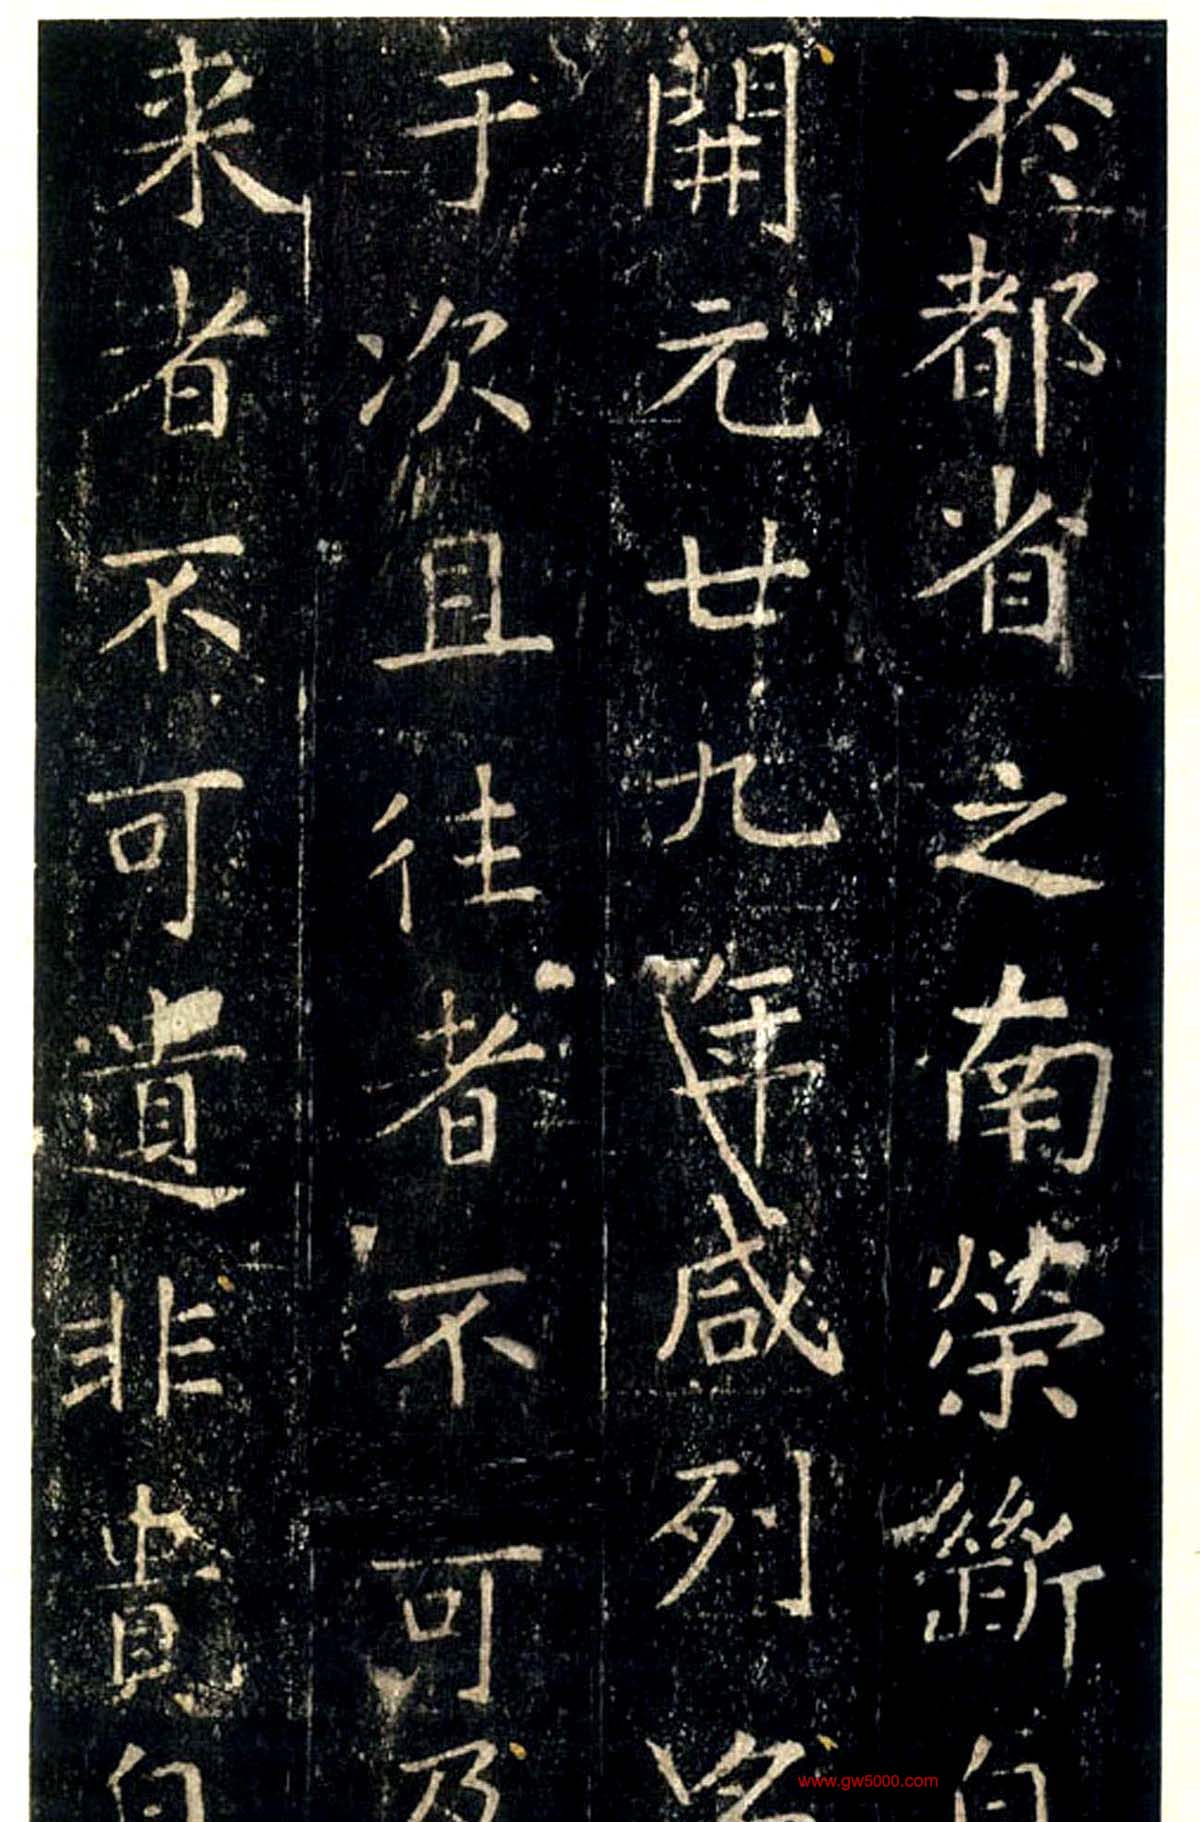 於都省之南榮斷自
開元廿九年咸列名
于次且往者不可及
来者不可遺非貴自
www.gw5000.com